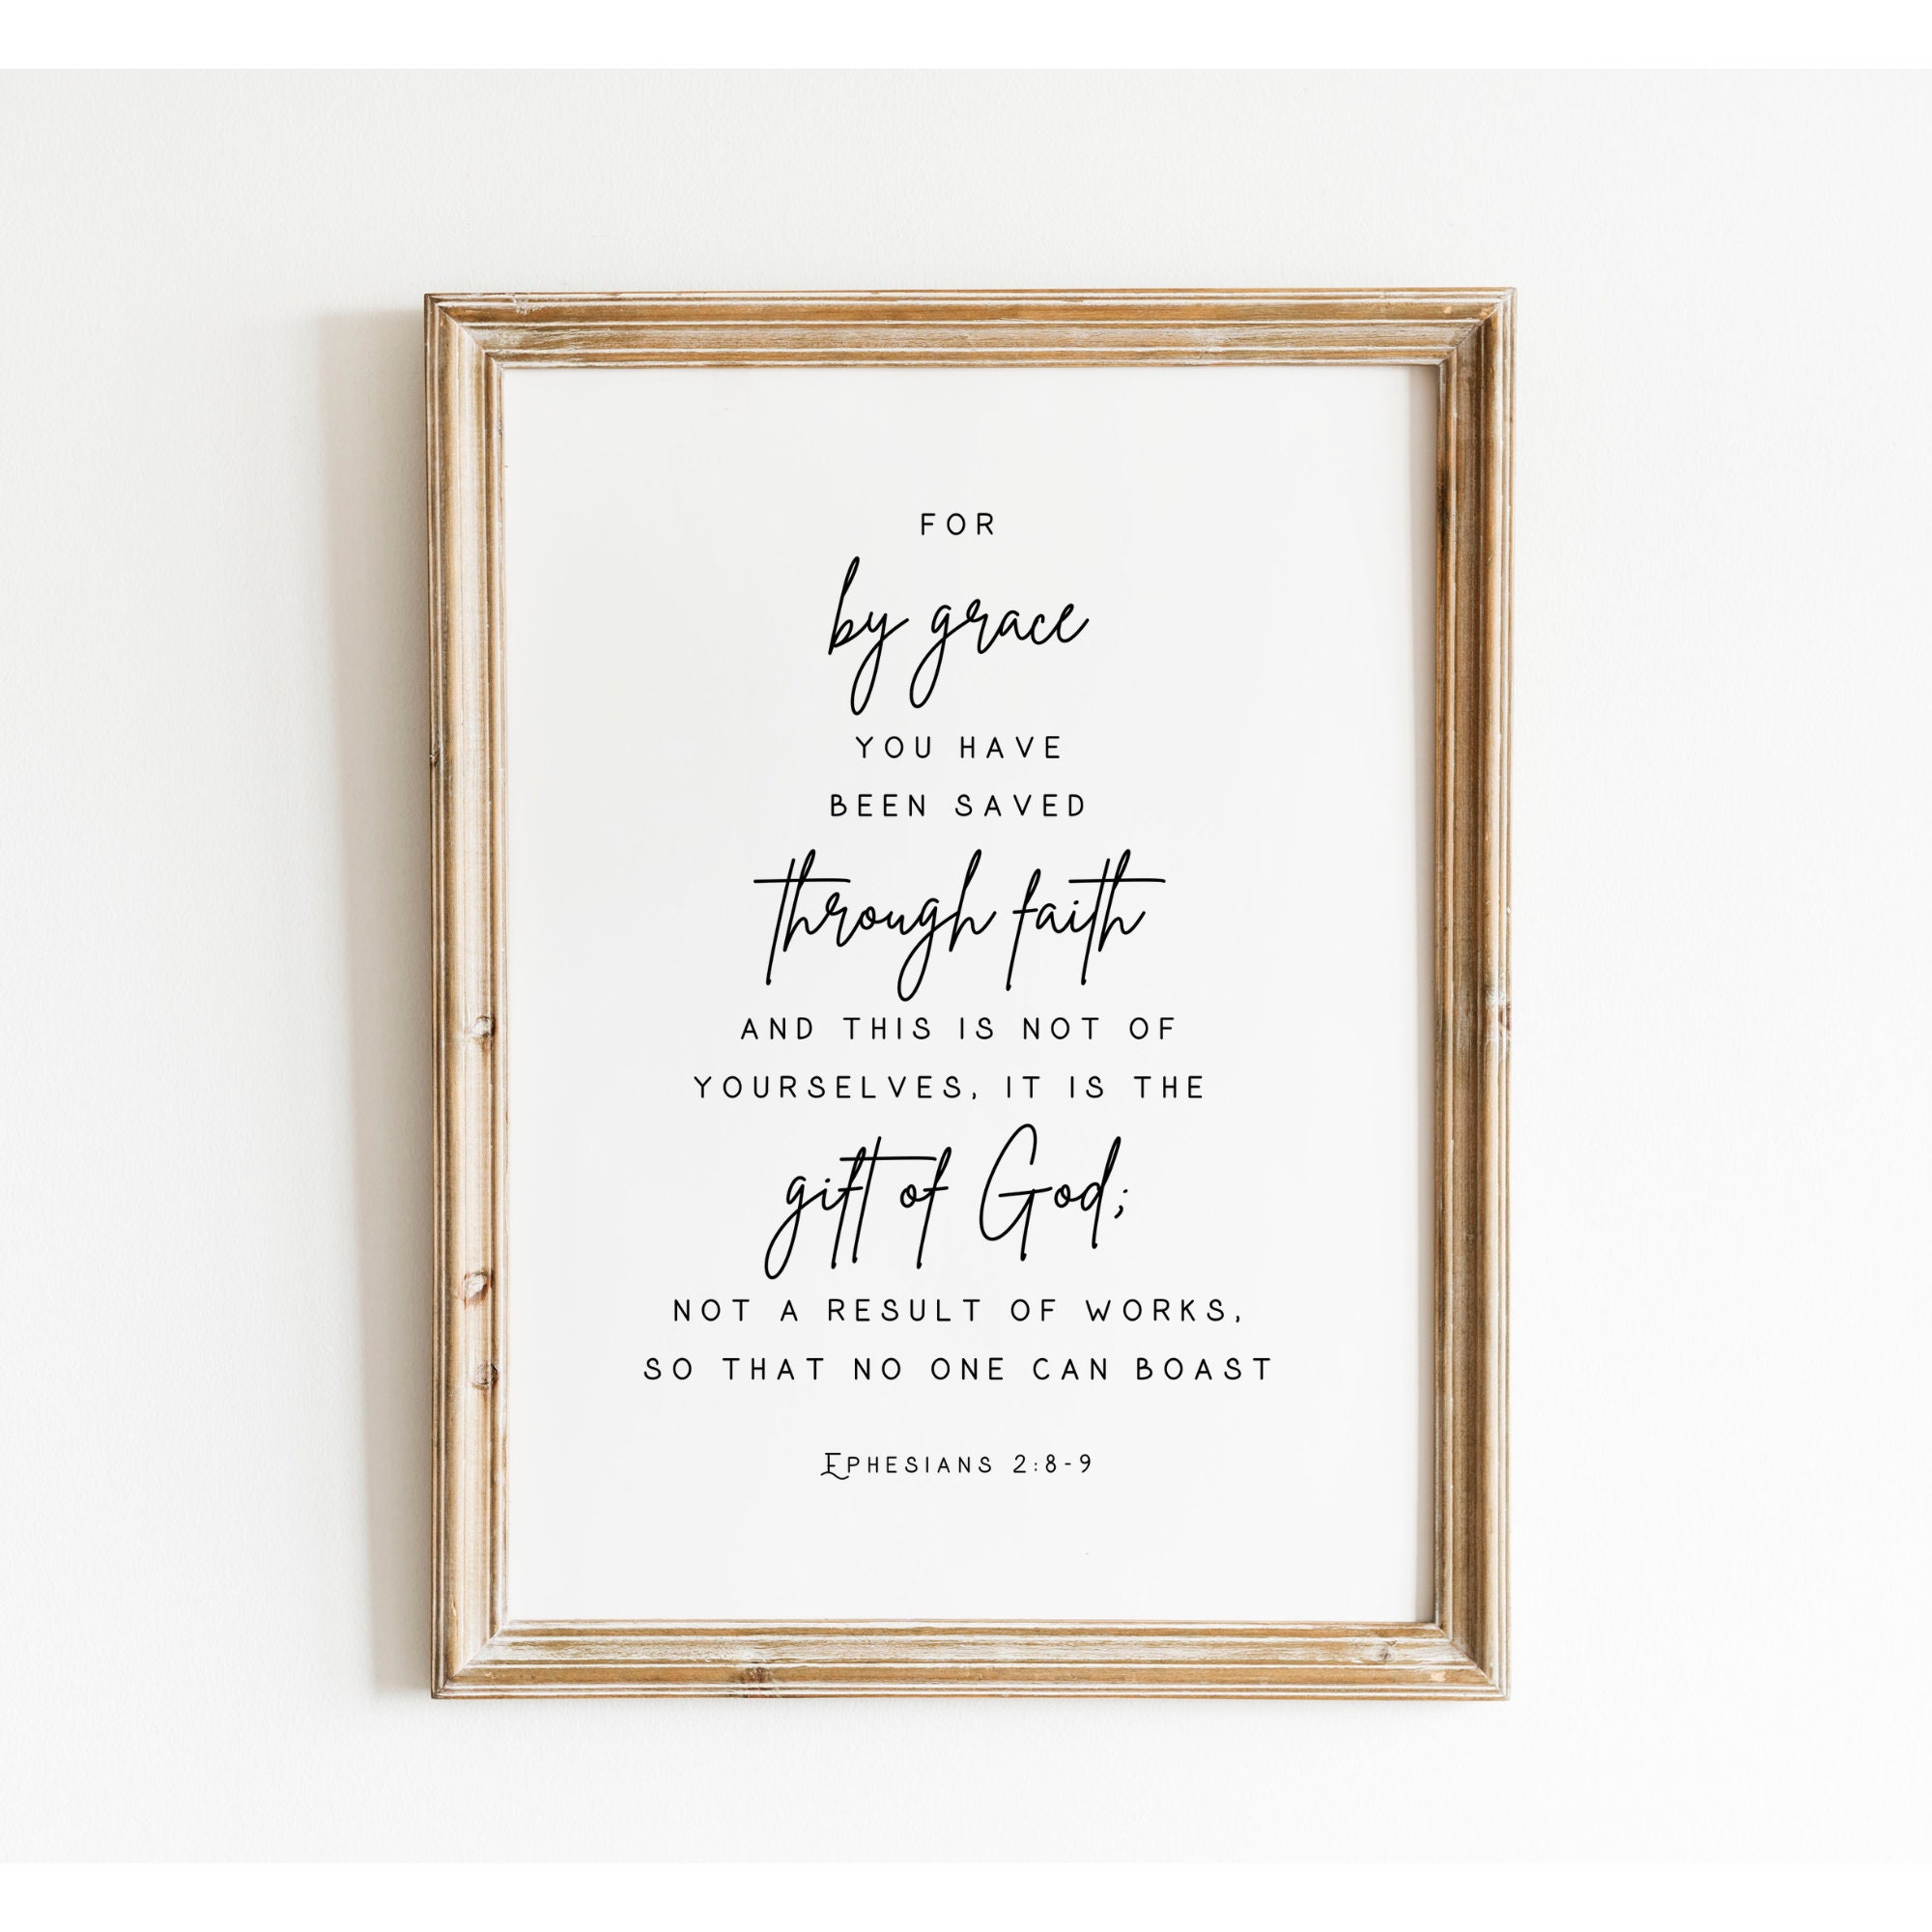 FOR
by grace
YOU HAVE
BEEN SAVED
through faith
AND THIS IS NOT OF
YOURSELVES, IT IS THE
gift of God;
NOT A RESULT OF WORKS,
SO THAT NO ONE CAN BOAST
EPHESIANS 2:8-9